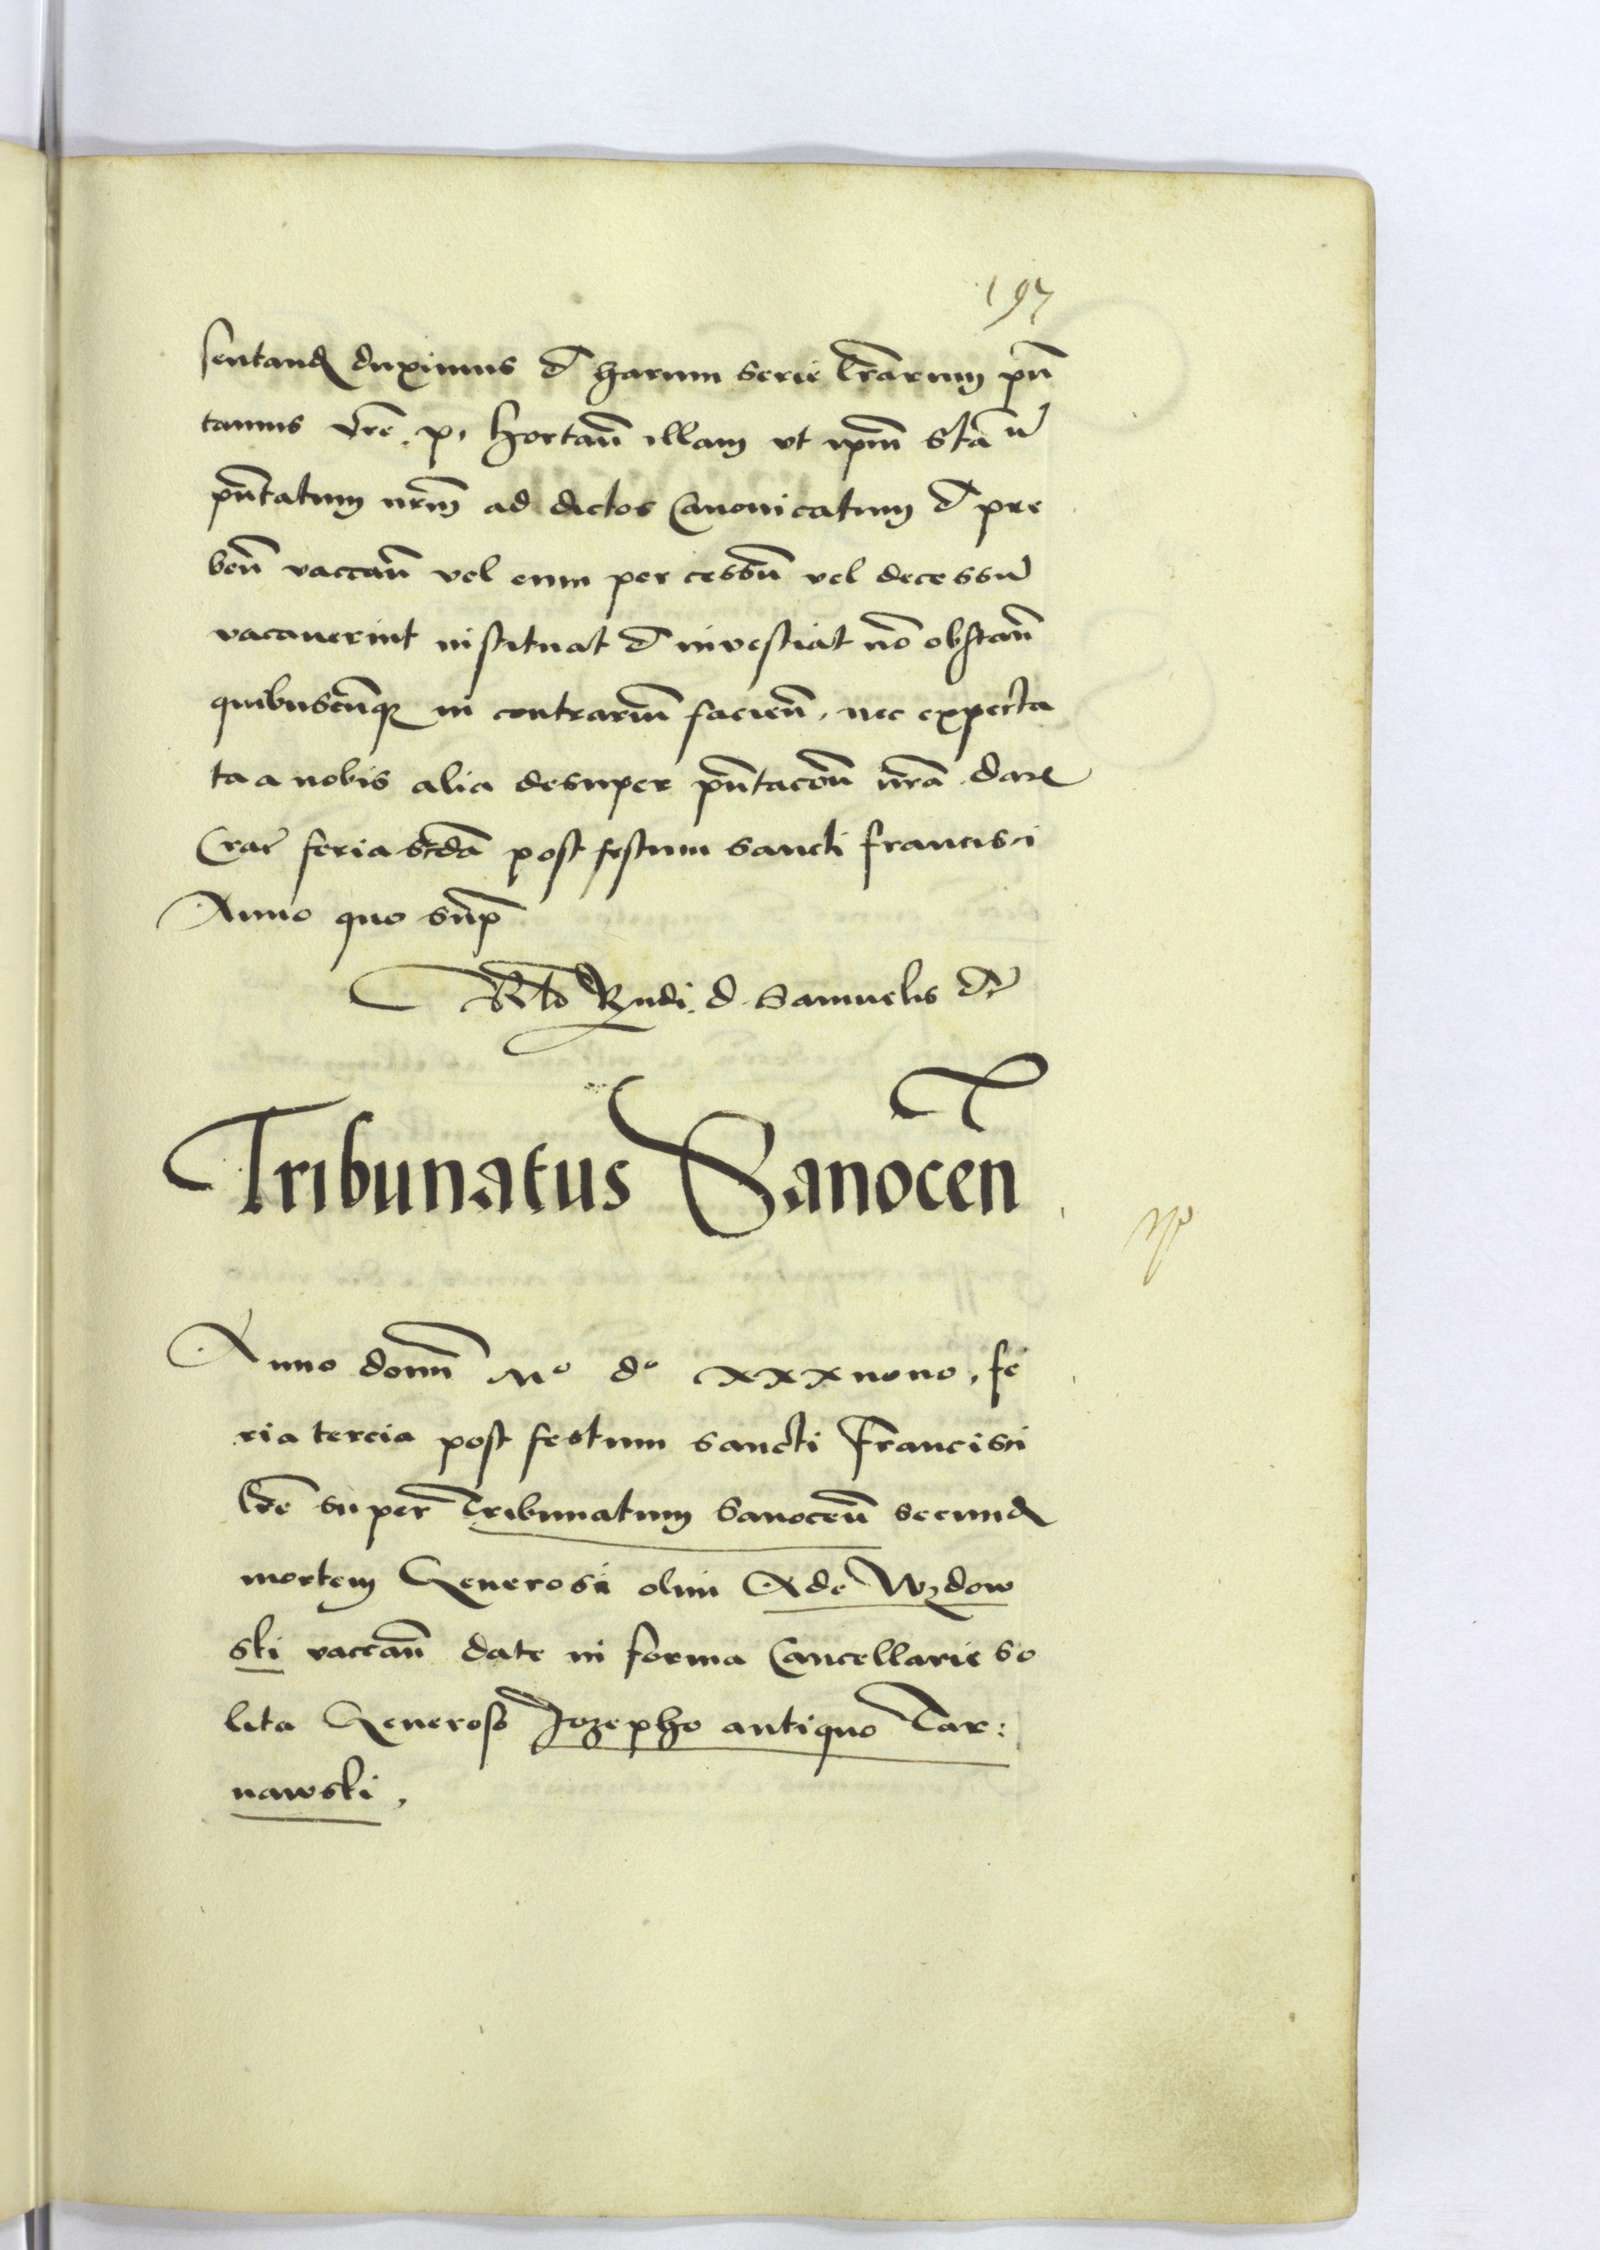 197
sentand duximus et harum serie lrarum pn
tamus vre. p. hortan illam ut ipm Sta n
pntatum nrm ad dictos Canonicatum et pre
ben vaccan vel cum per cessum vel decessum
vacaverint instituat et investiat no obstan
quibuscunq in contrarium facien, nec expecta
ta a nobis alia desuper pntacon nra. Dat
Crac feria scda post festum sancti francisci
Anno quo sup
Rlo Rndi. d. Samuelis etc
Tribunatus Sanocen
Anno domi Mo do xxxnono, fe
ria tercia post festum sancti Francisci
lre super Tribunatum Sanocen secund
mortem Generosi olim Ade Wzdow
ski vaccan date in forma Cancellarie so
lita Generoso Jozepho antiquo Tar:
nawski,